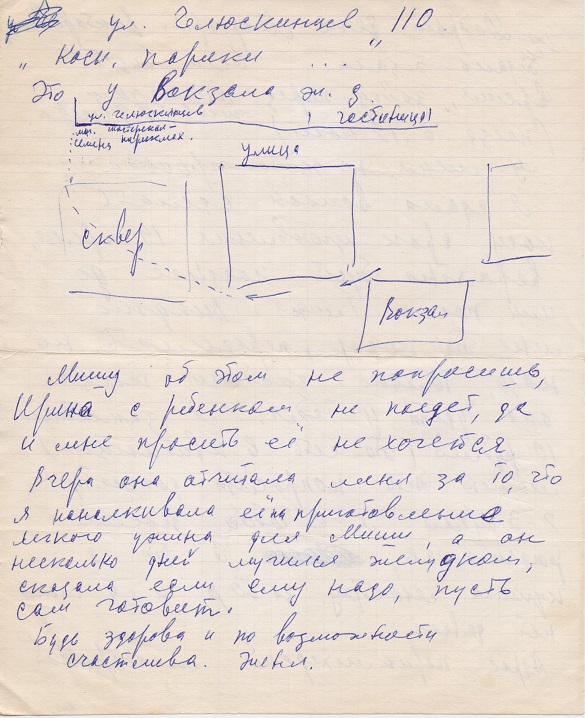 ул. Челюскинцев 110
„Косм. парики ... "
Это у Вокзала ж. д.
ул. челюскинцев
гостиница
улица
сквер
Вокзал
Мишу об этом не попросишь,
Ирина с ребенком не поедет, да
и мне просить её не хочется
Вчера она отчитала меня за то, что
я наталкивала её на приготовление
легкого ужина для Миши, а он
несколько дней мучился желудком,
сказала если ему надо, пусть
сам готовит.
Будь здорова и по возможности
счастлива.